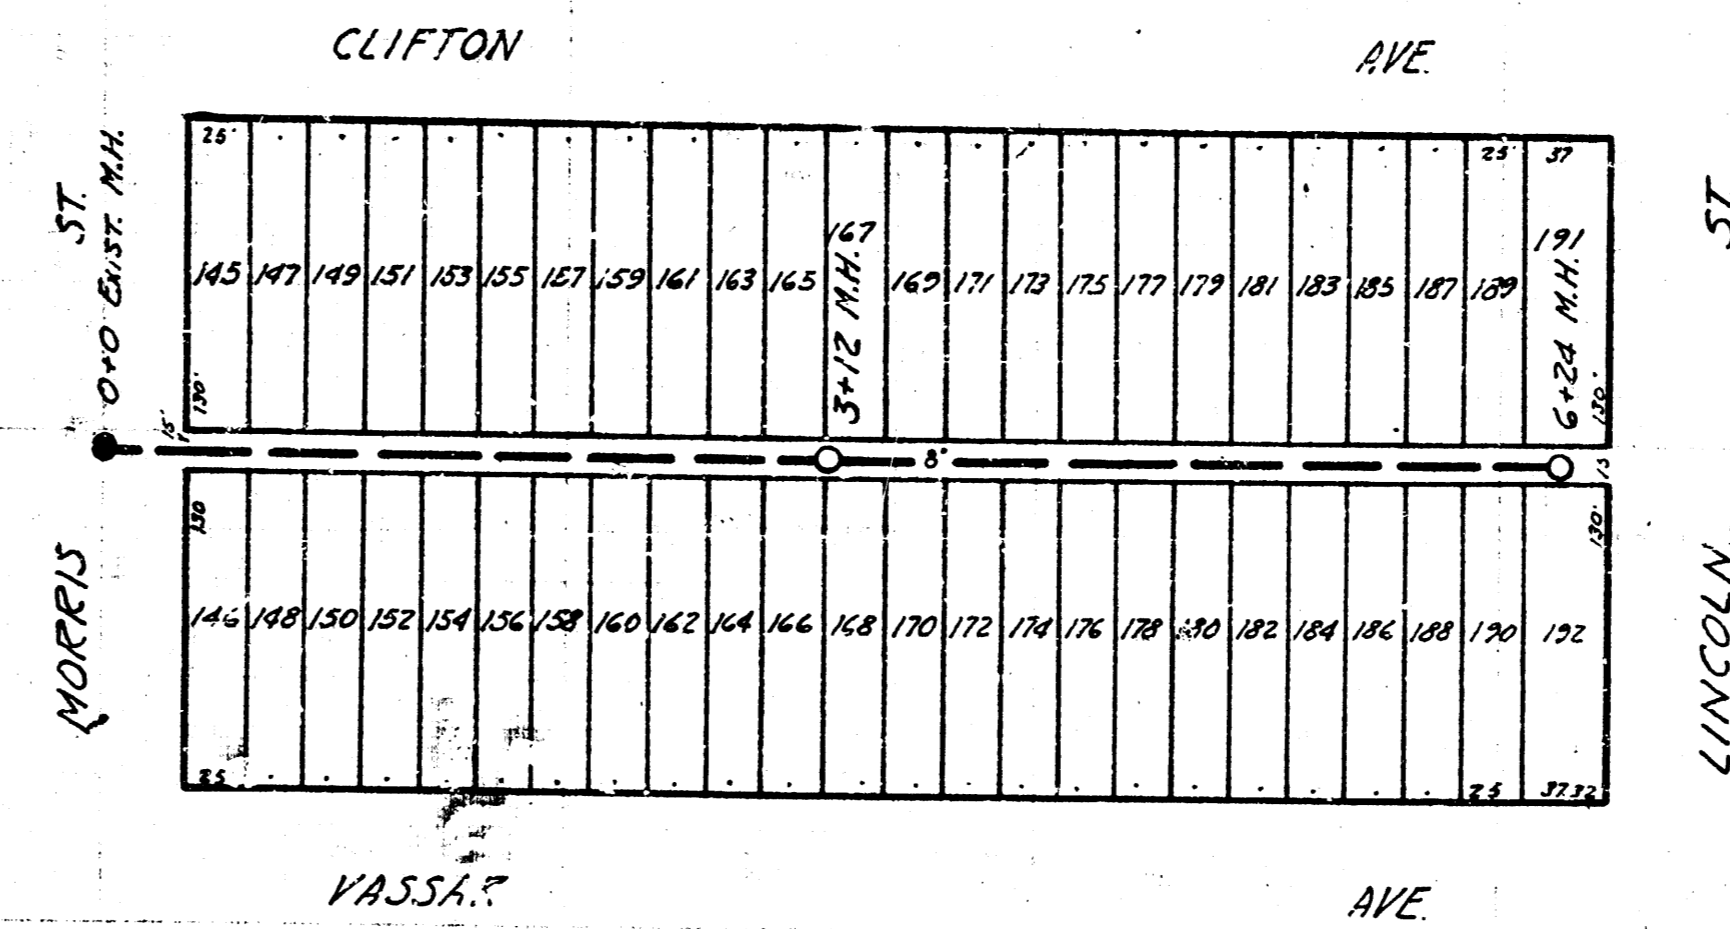 CLIFTON AVE.
MORRIS ST.
0+0 EXIST. M.H.
25' 25' 37
145 147 149 151 153 155 157 159 161 163 165 167 169 171 173 175 177 179 181 183 185 187 189 191
3+12 M.H.
6+24 M.H.
130' 130'
15' 8" 15
130 130'
146 148 150 152 154 156 158 160 162 164 166 168 170 172 174 176 178 180 182 184 186 188 190 192
25 25 37.32
LINCOLN ST
VASSAR AVE.